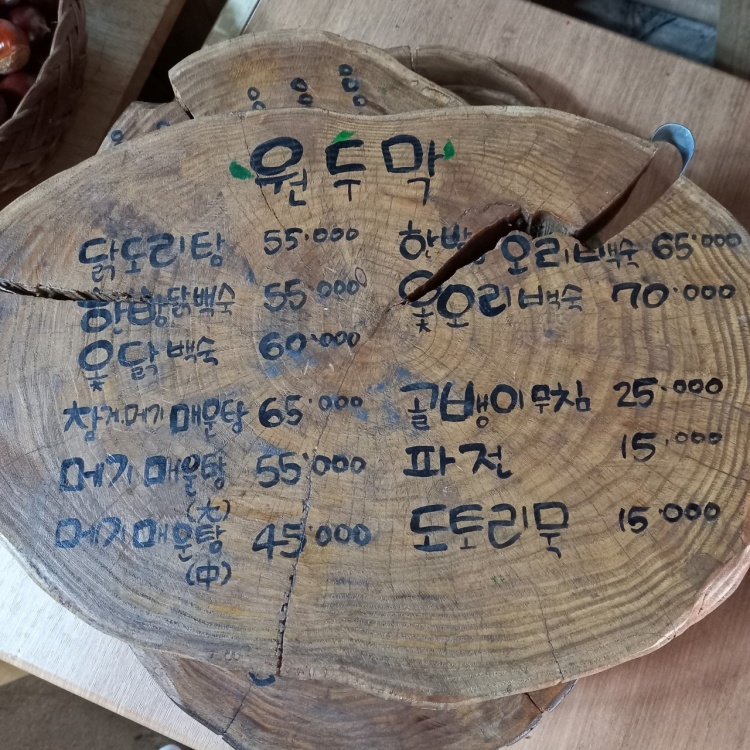 원두막
닭도리탕 55.000
한방닭백숙 55.000
옻닭백숙 60.000
참게.메기 매운탕 65.000
메기매운탕 55.000
(大)
메기매운탕 45.000
(中)
한방오리백숙 65.000
옻오리백숙 70.000
골뱅이무침 25.000
파전 15.000
도토리묵 15.000